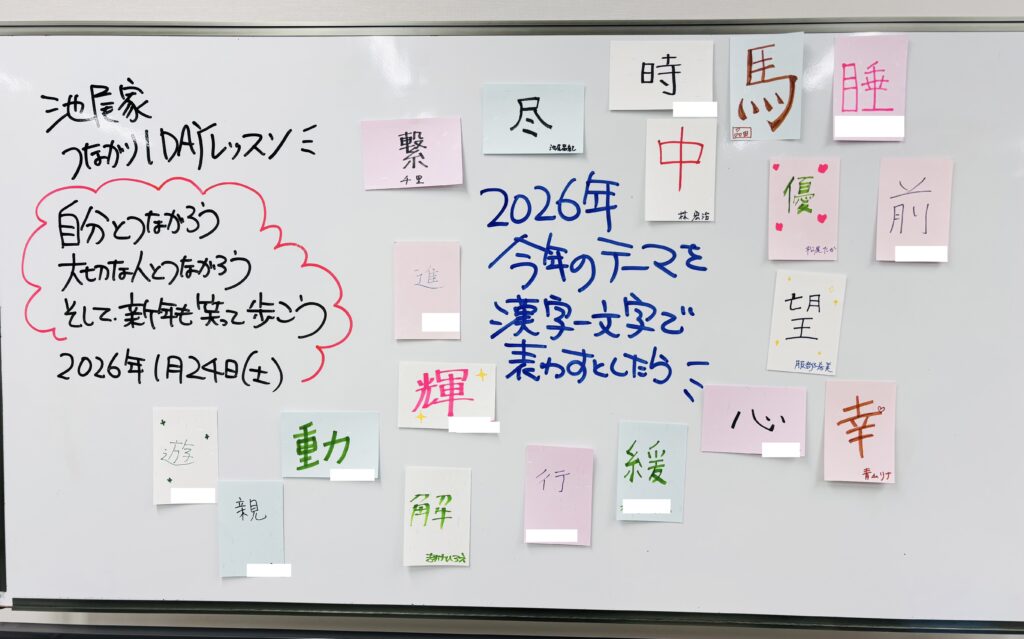 池尾家
つながり1DAYレッスン
自分とつながろう
大切な人とつながろう
そして、新年も笑って歩こう
2026年1月24日(土)
2026年
今年のテーマを
漢字一文字で
表わすとしたら
時
馬
睡
尽
繋
千里
中
林 宏治
優
前
進
望
輝
心
幸
青山リナ
遊
動
親
解
行
緩